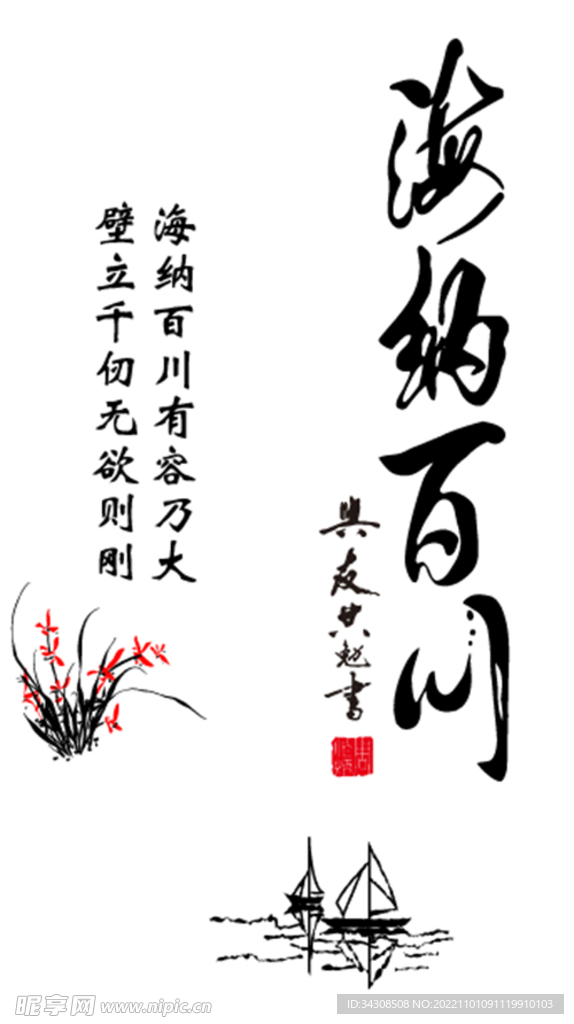 海纳百川
與友共勉書
海纳百川有容乃大
壁立千仞无欲则刚
昵享网 www.nipic.cn
ID:34308508 NO:20221101091119910103